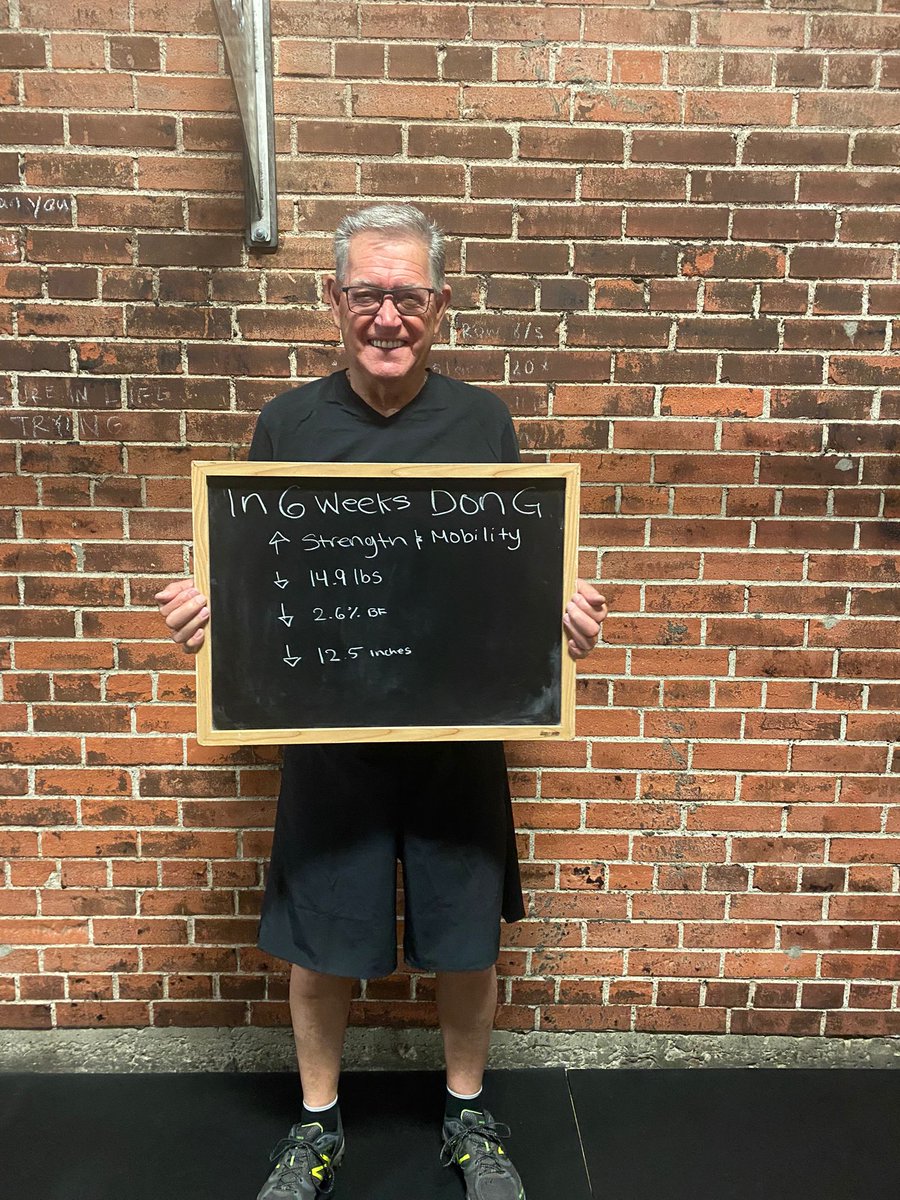 In 6 Weeks Don G.
↑ Strength & Mobility
↓ 14.9 lbs
↓ 2.6% BF
↓ 12.5 inches
you
TRYING